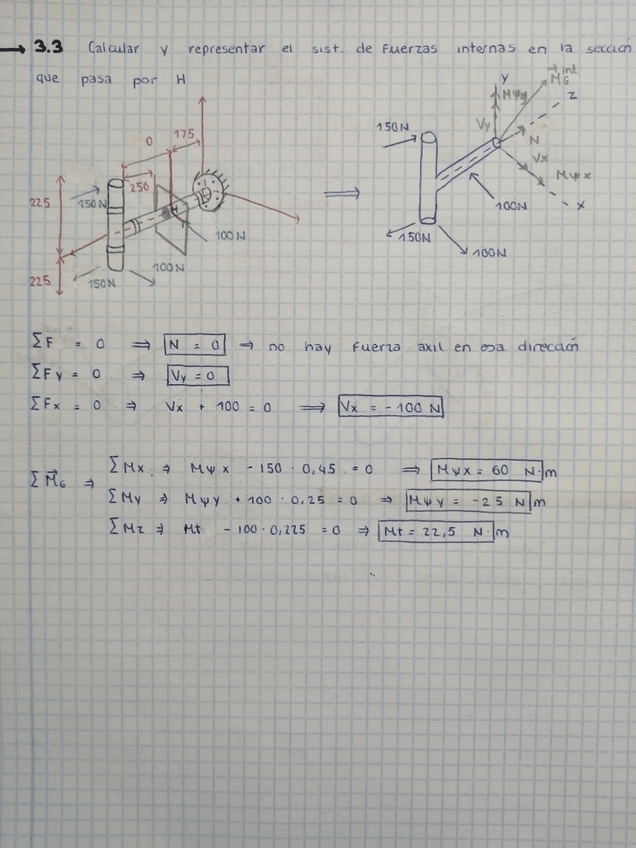 → 3.3 Calcular y representar el sist. de fuerzas internas en la sección
que pasa por H
0
175
250
225
225
150N
H
100N
100N
150N
⇒
Y
MΨy
M⃗G int
Z
Vy
N
Vx
MΨx
X
150N
100N
150N
100N
ΣF = 0 ⇒ N = 0 → no hay fuerza axil en esa dirección
ΣFy = 0 ⇒ Vy = 0
ΣFx = 0 ⇒ Vx + 100 = 0 ⇒ Vx = -100 N
ΣM⃗G ⇒
ΣMx ⇒ MΨx - 150 · 0,45 = 0 ⇒ MΨx = 60 N·m
ΣMy ⇒ MΨy + 100 · 0,25 = 0 ⇒ MΨy = -25 N m
ΣMz ⇒ Mt - 100 · 0,225 = 0 ⇒ Mt = 22,5 N·m